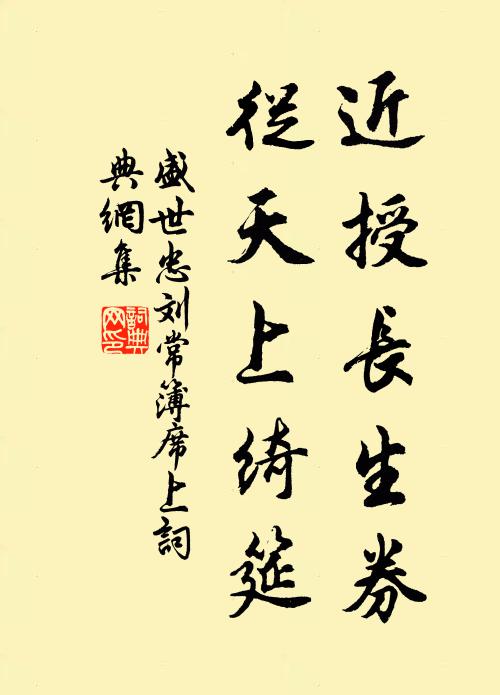 近授長生券
從天上綺筵
盛世忠刘常簿席上詞
典網集
詞典网印